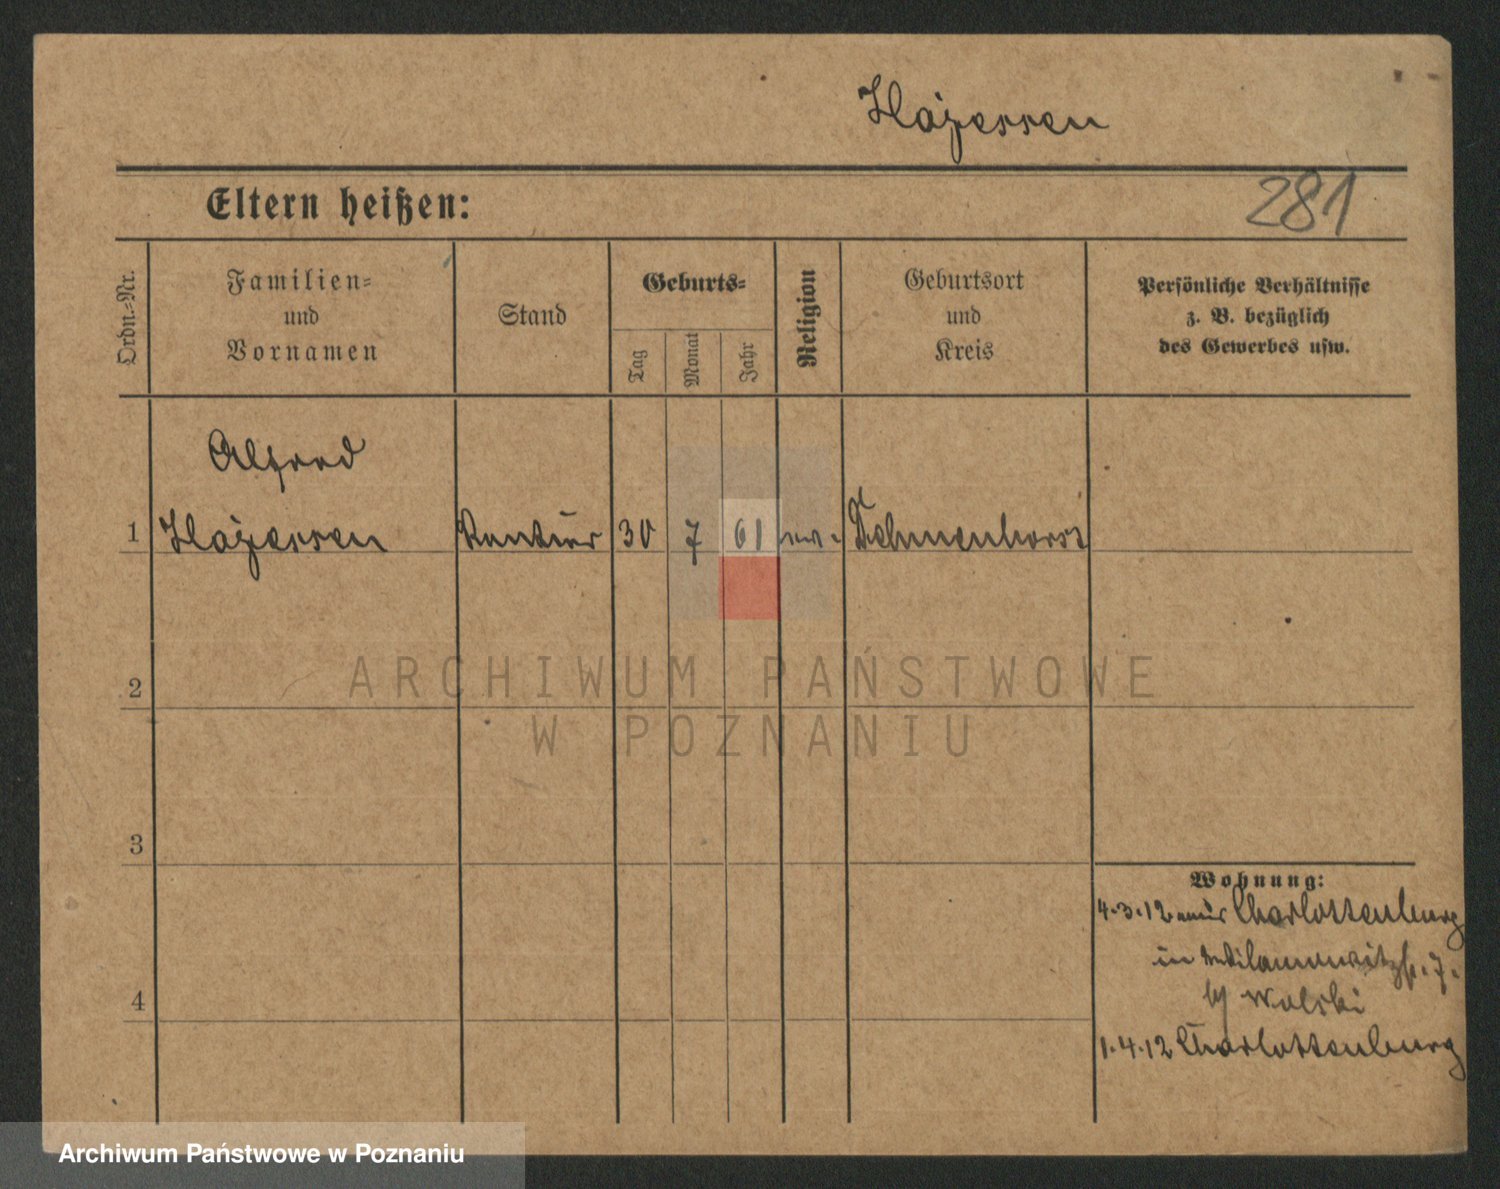 Hayessen
281
Eltern heißen:
Ordn.-Nr.
Familien-
und
Vornamen
Stand
Geburts-
Tag
Monat
Jahr
Religion
Geburtsort
und
Kreis
Persönliche Verhältnisse
z. B. bezüglich
des Gewerbes usw.
Alfred
1 Hayessen Rentier 30 7 61 ev. Delmenhorst
2
3
4
Wohnung:
4.3.12 aus Charlottenburg
in Wilamowitzstr. 7.
by Wolski
1.4.12 Charlottenburg
ARCHIWUM PAŃSTWOWE
W POZNANIU
Archiwum Państwowe w Poznaniu